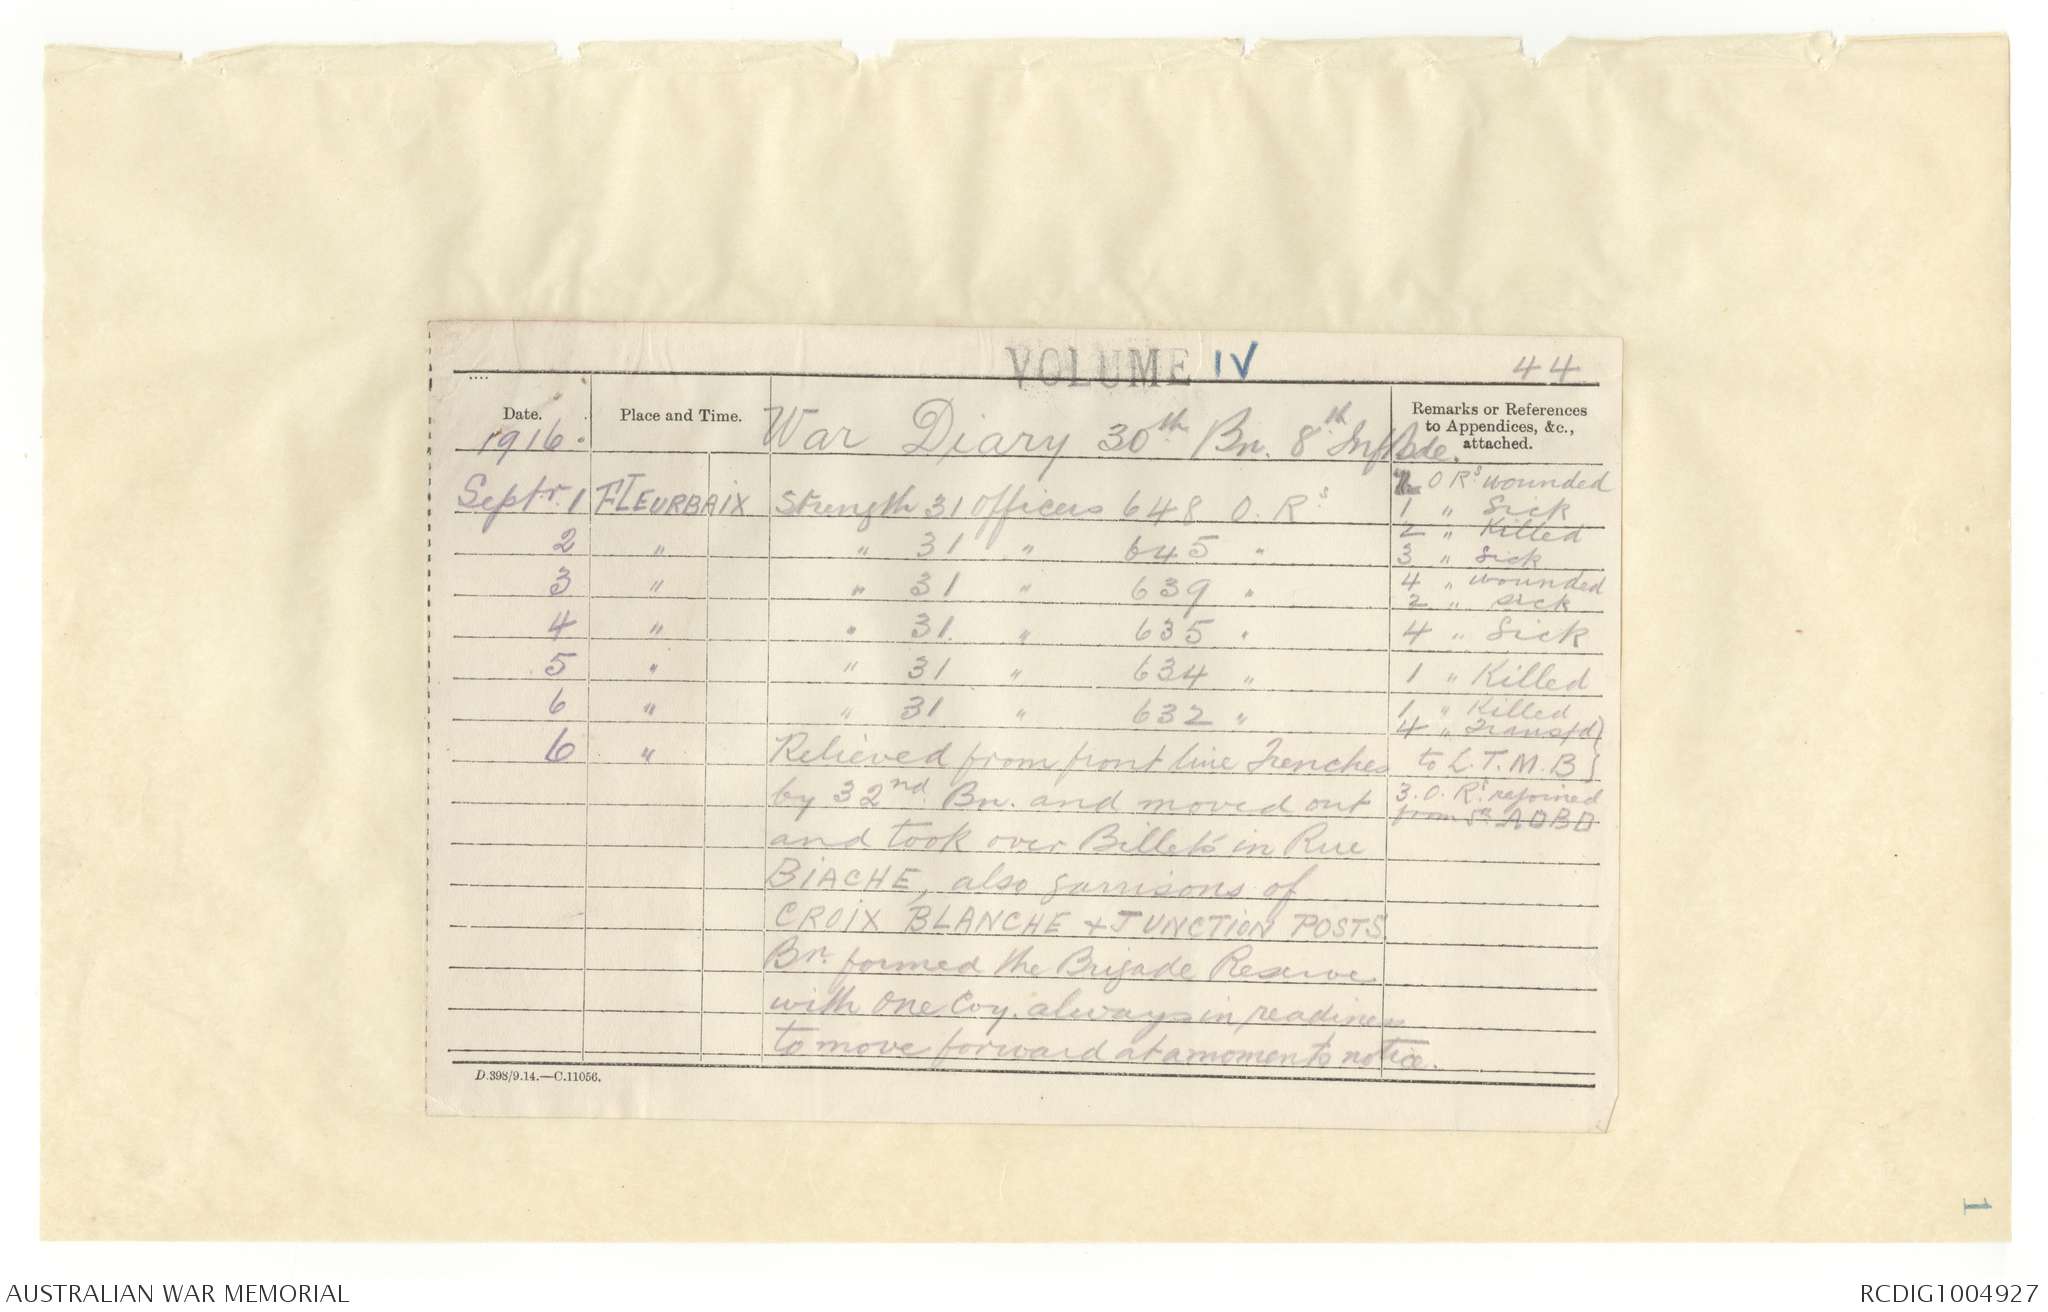 VOLUME IV
44
Date.
1916.
Place and Time.
War Diary 30th Bn. 8th Inf Bde.
Remarks or References
to Appendices, &c.,
attached.
O Rs wounded
Septr. 1 FLEURBAIX Strength 31 Officers 648 O. Rs. 1 " Sick
2 " Killed
2 " " 31 " 645 " 3 " Sick
3 " " 31 " 639 " 4 " wounded
2 " Sick
4 " " 31. " 635 " 4 " Sick
5 " " 31 " 634 " 1 " Killed
6 " " 31 " 632 " 1 " Killed
4 " Transf'd }
6 " Relieved from front line Trenches to L.T.M.B }
by 32nd. Bn. and moved out 3. O. Rs. rejoined
from ADBD
and took over Billets in Rue
BIACHE, also garrisons of
CROIX BLANCHE + JUNCTION POSTS.
Bn. formed the Brigade Reserve
with One Coy. always in readiness
to move forward at a moments notice.
D.398/9.14.—C.11056.
1
AUSTRALIAN WAR MEMORIAL
RCDIG1004927